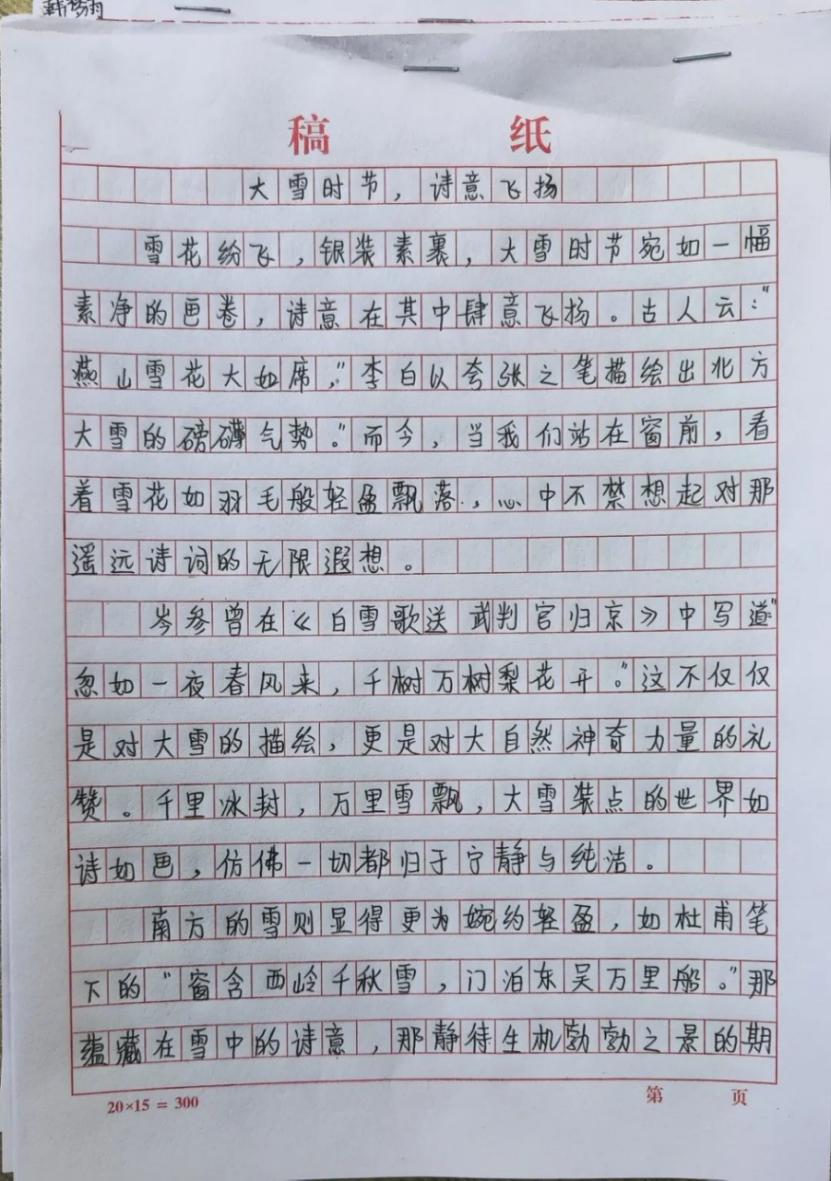 韩梦雨
稿 纸
大雪时节，诗意飞扬
雪花纷飞，银装素裹，大雪时节宛如一幅
素净的画卷，诗意在其中肆意飞扬。古人云：“
燕山雪花大如席，”李白以夸张之笔描绘出北方
大雪的磅礴气势。”而今，当我们站在窗前，看
着雪花如羽毛般轻盈飘落，心中不禁想起对那
遥远诗词的无限遐想。
岑参曾在《白雪歌送武判官归京》中写道“
忽如一夜春风来，千树万树梨花开。”这不仅仅
是对大雪的描绘，更是对大自然神奇力量的礼
赞。千里冰封，万里雪飘，大雪装点的世界如
诗如画，仿佛一切都归于宁静与纯洁。
南方的雪则显得更为婉约轻盈，如杜甫笔
下的“窗含西岭千秋雪，门泊东吴万里船。”那
蕴藏在雪中的诗意，那静待生机勃勃之景的期
20×15 = 300
第 页